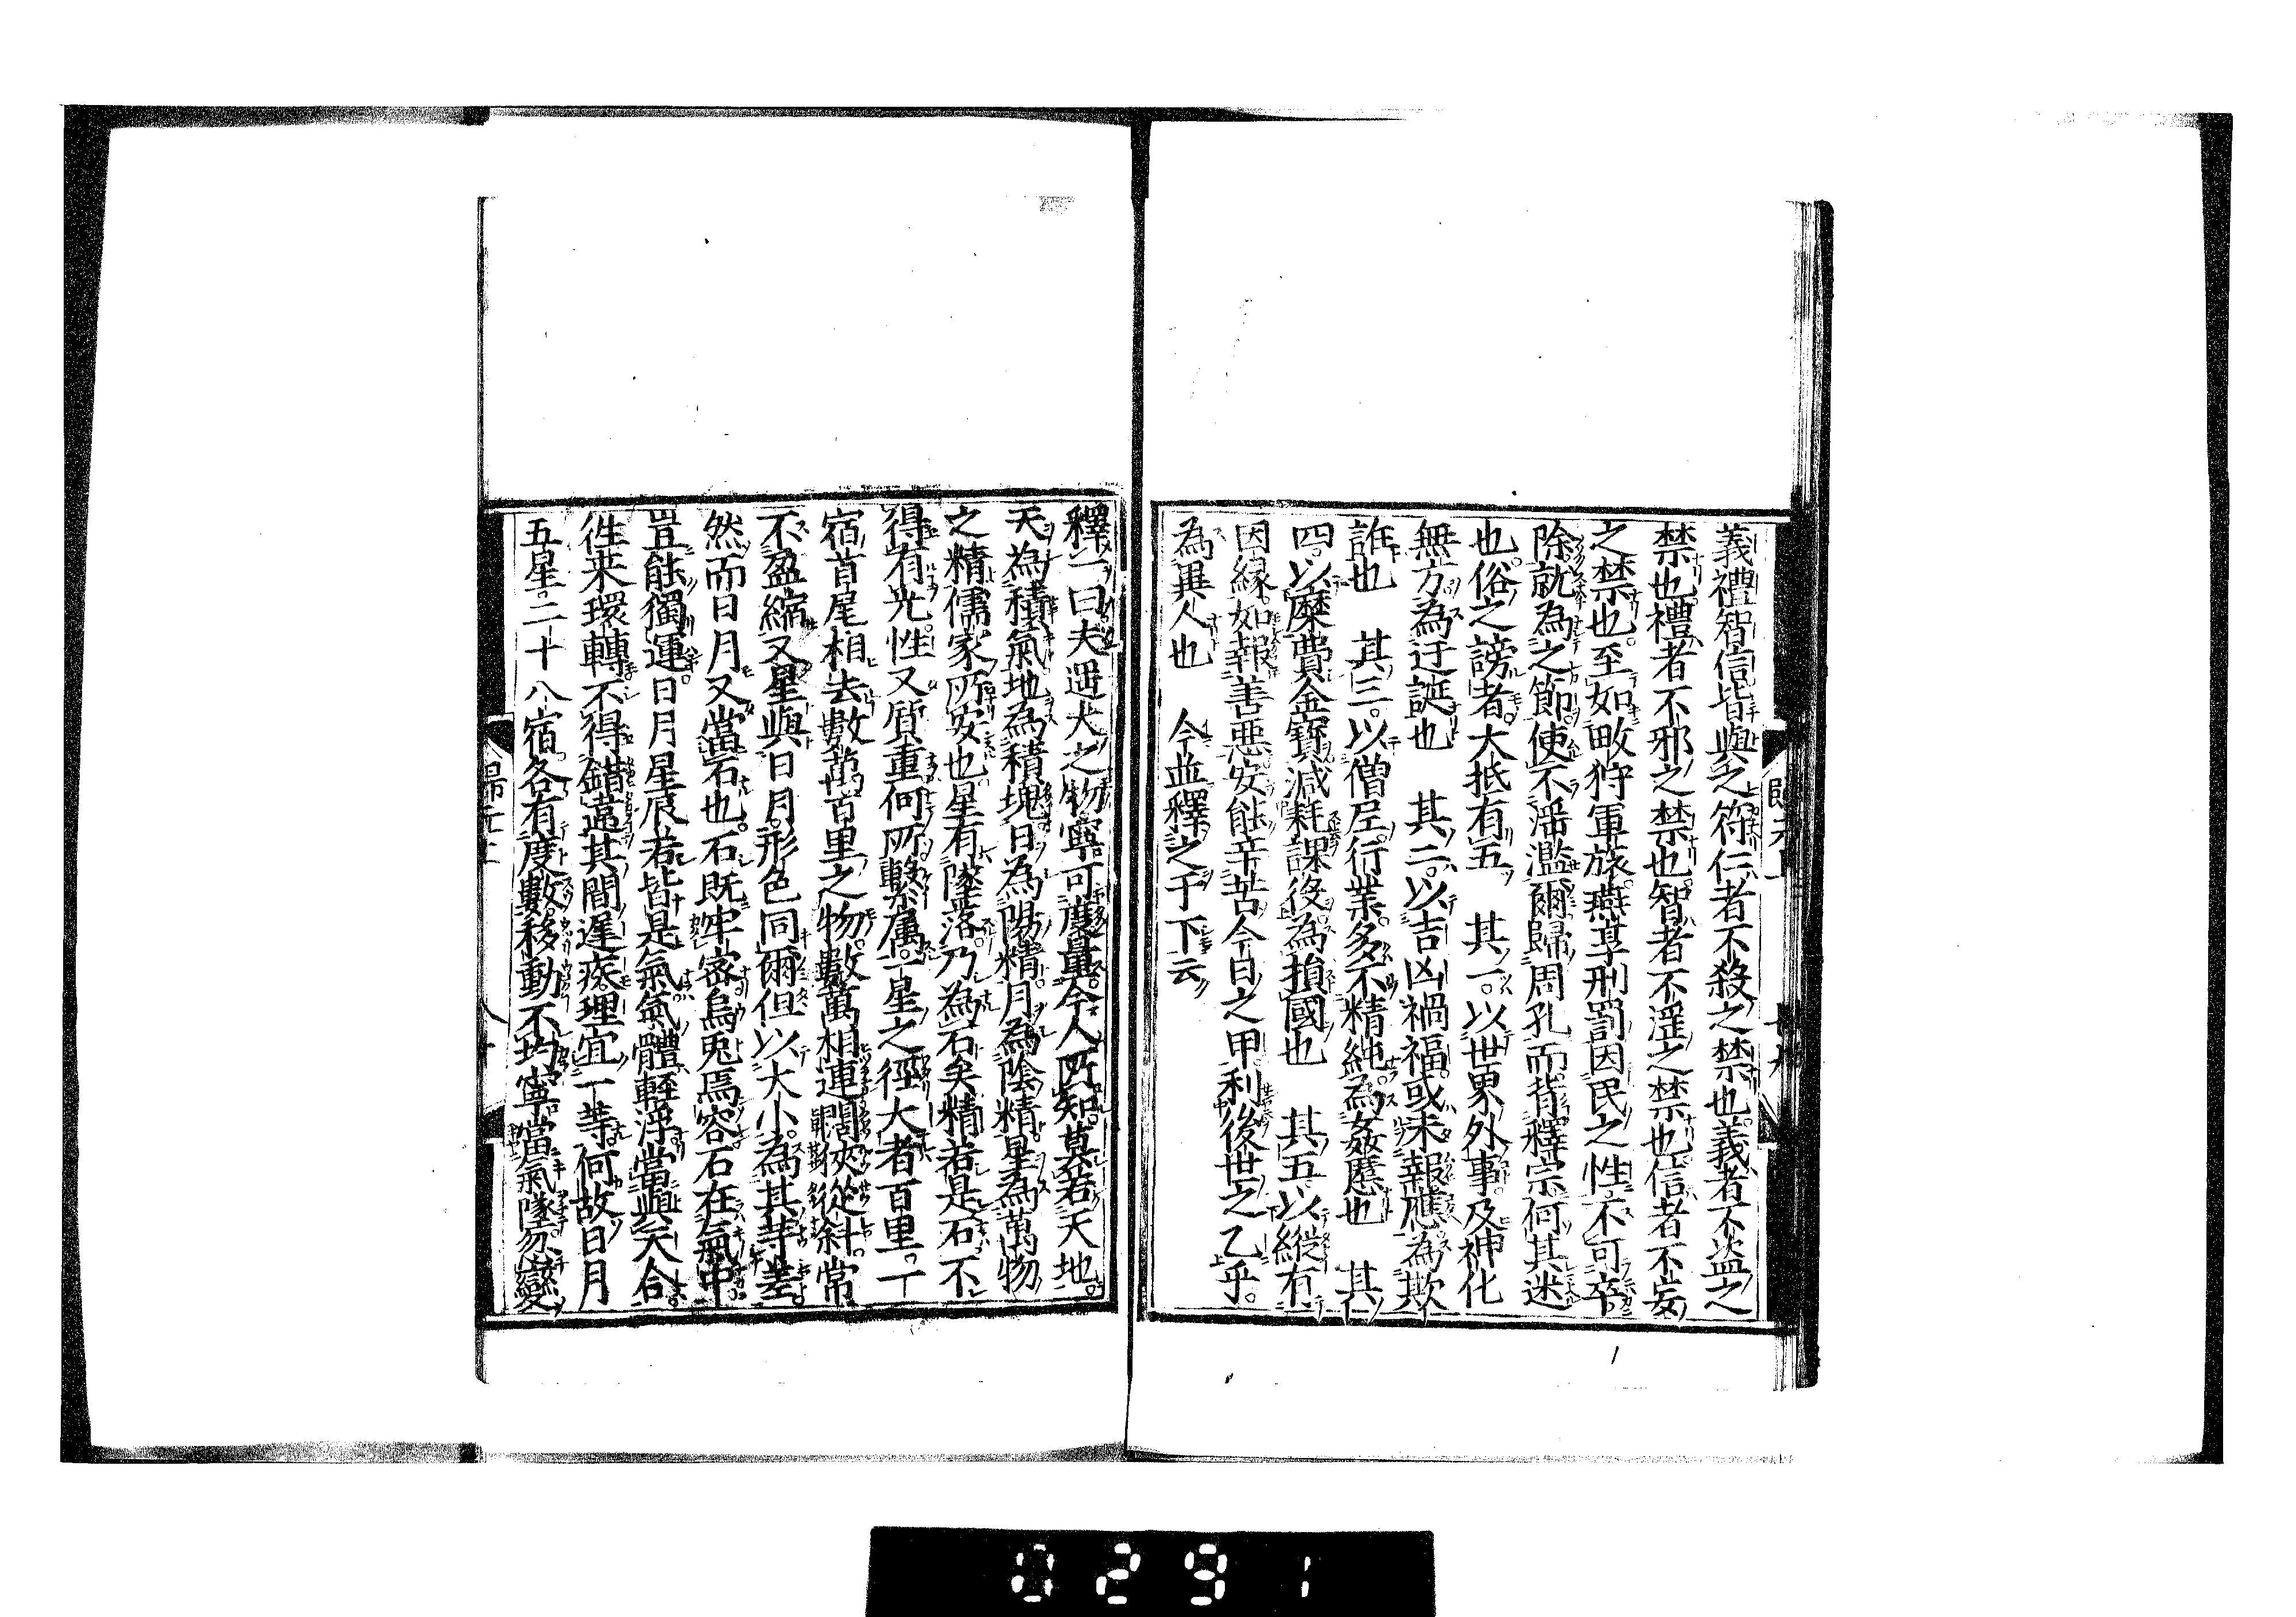 義禮智信皆與之符仁者不殺之禁也義者不盜之
禁也禮者不邪之禁也智者不淫之禁也信者不妄
之禁也至如畋狩軍旅燕享刑罰因民之性不可卒
除就為之節使不淫濫爾歸周孔而背釋宗何其迷
也俗之謗者大抵有五　其一以世界外事及神化
無方為迂誕也　其二以吉凶禍福或未報應為欺
誑也　其三以僧尼行業多不精純為姦慝也　其
四以糜費金寶減耗課役為損國也　其五以縱有
因緣如報善惡安能辛苦今日之甲利後世之乙乎
為異人也　今並釋之于下云
釋一曰夫遥大之物寧可度量今人所知莫若天地
天為積氣地為積塊日為陽精月為陰精星為萬物
之精儒家所安也星有墜落乃為石矣精若是石不
得有光性又質重何所繫属一星之徑大者百里一
宿首尾相去數萬百里之物數萬相連闊狹從斜常
不盈縮又星與日月形色同爾但以大小為其等差
然而日月又當石也石既牢密烏兎焉容石在氣中
豈能獨運日月星辰若皆是氣氣體輕浮當與天合
徃来環轉不得錯違其間遲疾理宜一等何故日月
五星二十八宿各有度數移動不均寧當氣墜忽變
0291